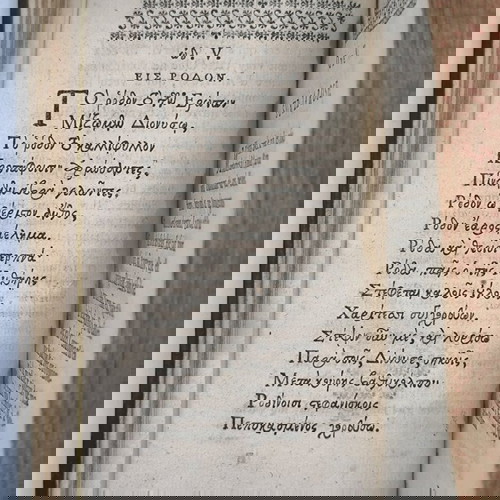 ᾠδ. V.
ΕΙΣ ΡΟΔΟΝ.
Τὸ ῥόδον τὸ τῶν Ἐρώτων
Μίξωμεν Διονύσῳ.
Τὸ ῥόδον τὸ καλλίφυλλον
Κροτάφοισιν ἁρμόσαντες,
Πίνωμεν ἁβρὰ γελῶντες.
Ῥόδον ὦ φέριστον ἄνθος,
Ῥόδον ἔαρος μέλημα,
Ῥόδα καὶ θεοῖσι τερπνά.
Ῥόδα παῖς ὁ τῆς Κυθήρης
Στέφεται καλοῖς ἰούλοις
Χαρίτεσσι συγχορεύων.
Στέψον οὖν με, καὶ λυρίζω
Παρὰ σοῖς Διόνυσε σηκοῖς
Μετὰ κούρης βαθυκόλπου
Ῥοδίνοισι στεφανίσκοις
Πεπυκασμένος χορεύσω.